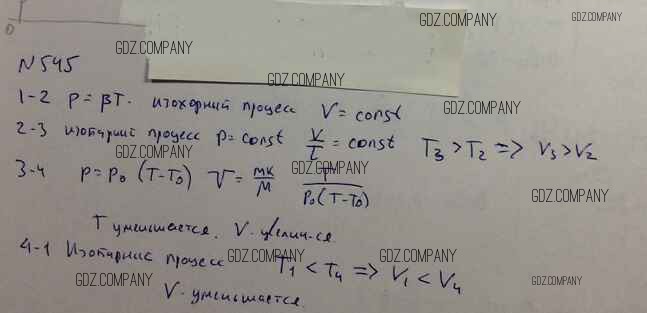 0
GDZ.COMPANY GDZ.COMPANY
GDZ.COMPANY
N 545 GDZ.COMPANY
1-2 p = βT. изохорный процесс V = const GDZ.COMPANY
2-3 изобарный процесс p = const V/t = const T₃ > T₂ => V₃ > V₂
GDZ.COMPANY GDZ.COMPANY
3-4 p = p₀ (T - T₀) V = mк/M T/p₀(T - T₀) GDZ.COMPANY
T уменьшается. V - увелич-ся.
4-1 Изобарний процесс GDZ.COMPANY T₁ < T₄ => V₁ < V₄ GDZ.COMPANY
GDZ.COMPANY GDZ.COMPANY
V - уменьшается.